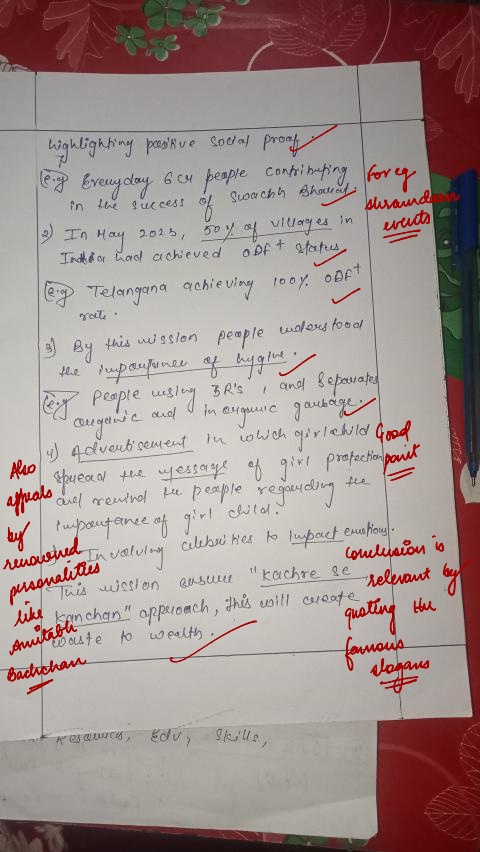 highlighting positive social proof.
e.g Everyday 6 cr people contributing
in the success of Swachh Bharat.
For eg
shramdaan
events
2) In May 2023, 50% of villages in
India had achieved ODF+ status
e.g Telangana achieving 100% ODF+
rate.
3) By this mission people understood
the importance of hygine.
e.g People using 3R's, and separates
organic and in organic garbage.
4) Advertisement in which girl child
spread the message of girl protection
and remind the people regarding the
importance of girl child.
Good
point
Involving celebrities to impact emotions.
Also
appeals
by
renowned
personalities
like
Amitabh
Bachchan
This mission ensure "kachre se
kanchan" approach, this will create
waste to wealth.
Conclusion is
relevant by
quoting the
famous
slogans
Resources, Edu, Skills,